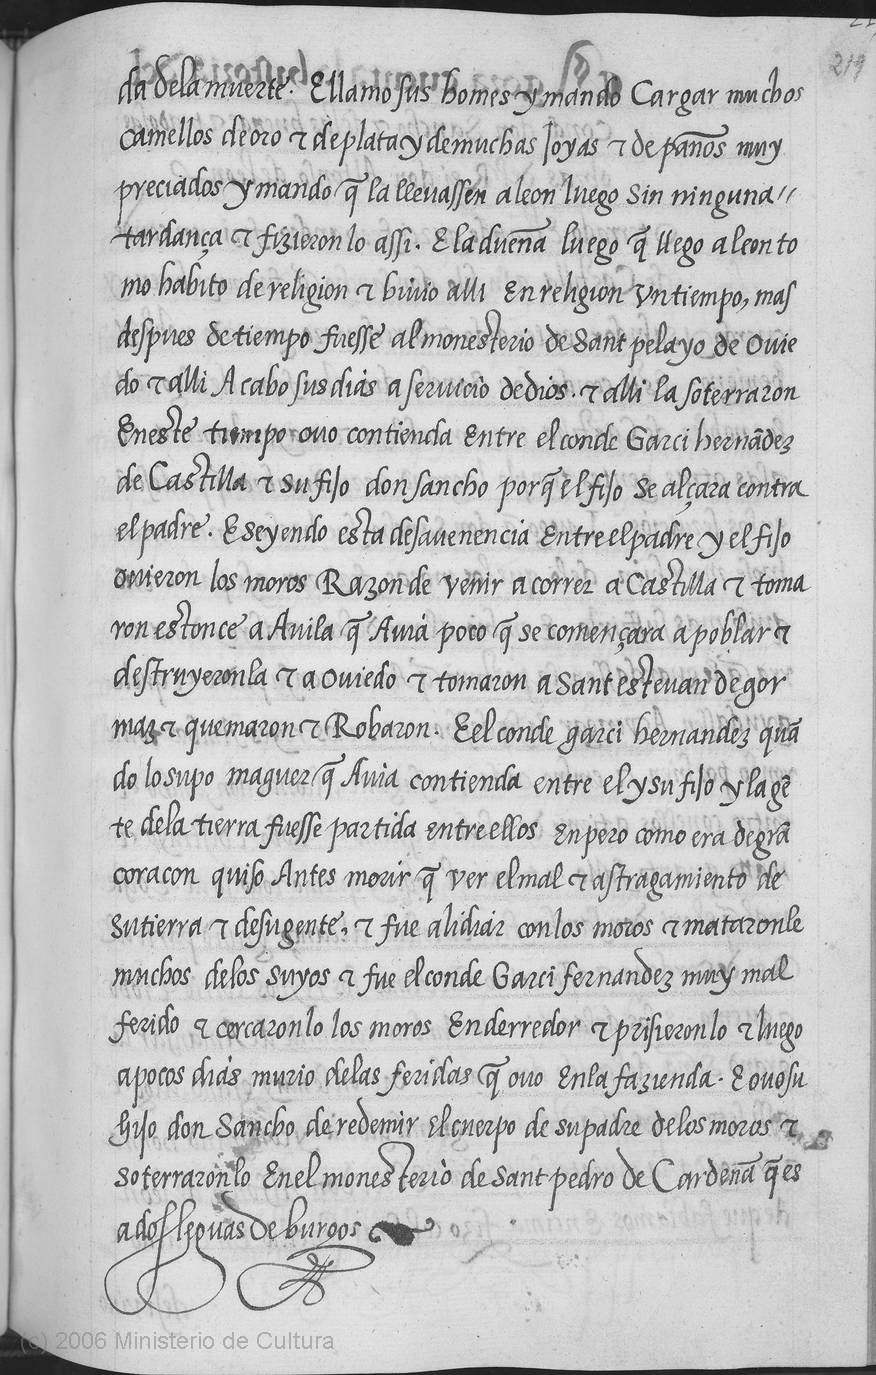 219
da dela muerte. E llamo sus homes y mando Cargar muchos
camellos de oro τ de plata y de muchas Joyas τ de pãnos muy
preciados y mando q̃ la llevassen a leon luego Sin ninguna
tardança τ fizieron lo assi. E la dueña luego q̃ llego a leon to
mo habito de religion τ bivio alli En religion vn tiempo, mas
despues de tiempo fuesse al monesterio de Sant pelayo de Ovie
do τ alli Acabo sus dias a servicio de dios. τ alli la soterraron
En este tiempo ovo contienda Entre el conde Garci hernãdez
de Castilla τ su fijo don sancho porq̃ el fijo se alçara contra
el padre. E seyendo esta desavenencia Entre el padre y el fijo
ovieron los moros Razon de venir a correr a Castilla τ toma
ron estonce a Avila q̃ Avia poco q̃ se començara a poblar τ
destruyeronla τ a Oviedo τ tomaron a Sant estevan de gor
maz τ quemaron τ Robaron. E el conde garci hernandez quã
do lo supo maguer q̃ Avia contienda entre el y su fijo y la gẽ
te de la tierra fuesse partida entre ellos En pero como era de grã
coracon quiso Antes morir q̃ ver el mal τ astragamiento de
su tierra τ de su gente, τ fue a lidiar con los moros τ mataronle
muchos de los suyos τ fue el conde Garci fernandez muy mal
ferido τ cercaronlo los moros En derredor τ prisieronlo τ luego
a pocos dias murio de las feridas q̃ ovo En la fazienda. E ovo su
hijo don Sancho de redemir El cuerpo de su padre de los moros τ
soterraronlo En el monesterio de Sant pedro de Cardeña q̃ es
a dos leguas de burgos
(c) 2006 Ministerio de Cultura